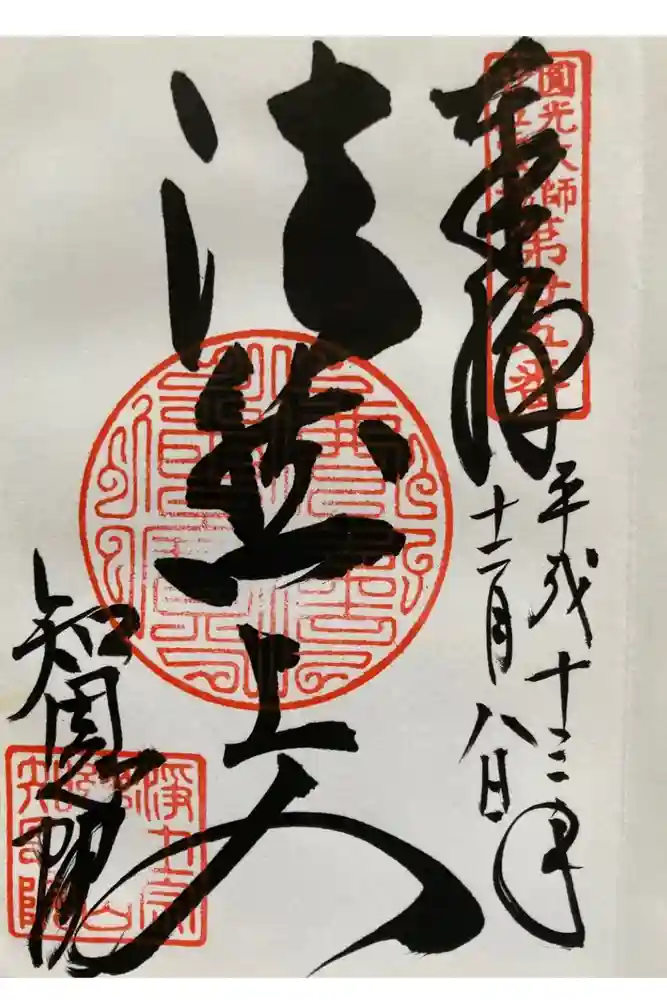 圓光大師
第廿五番
奉拝
平成十三年
十二月八日
法然上人
知恩院
淨土宗
總本山
知恩院